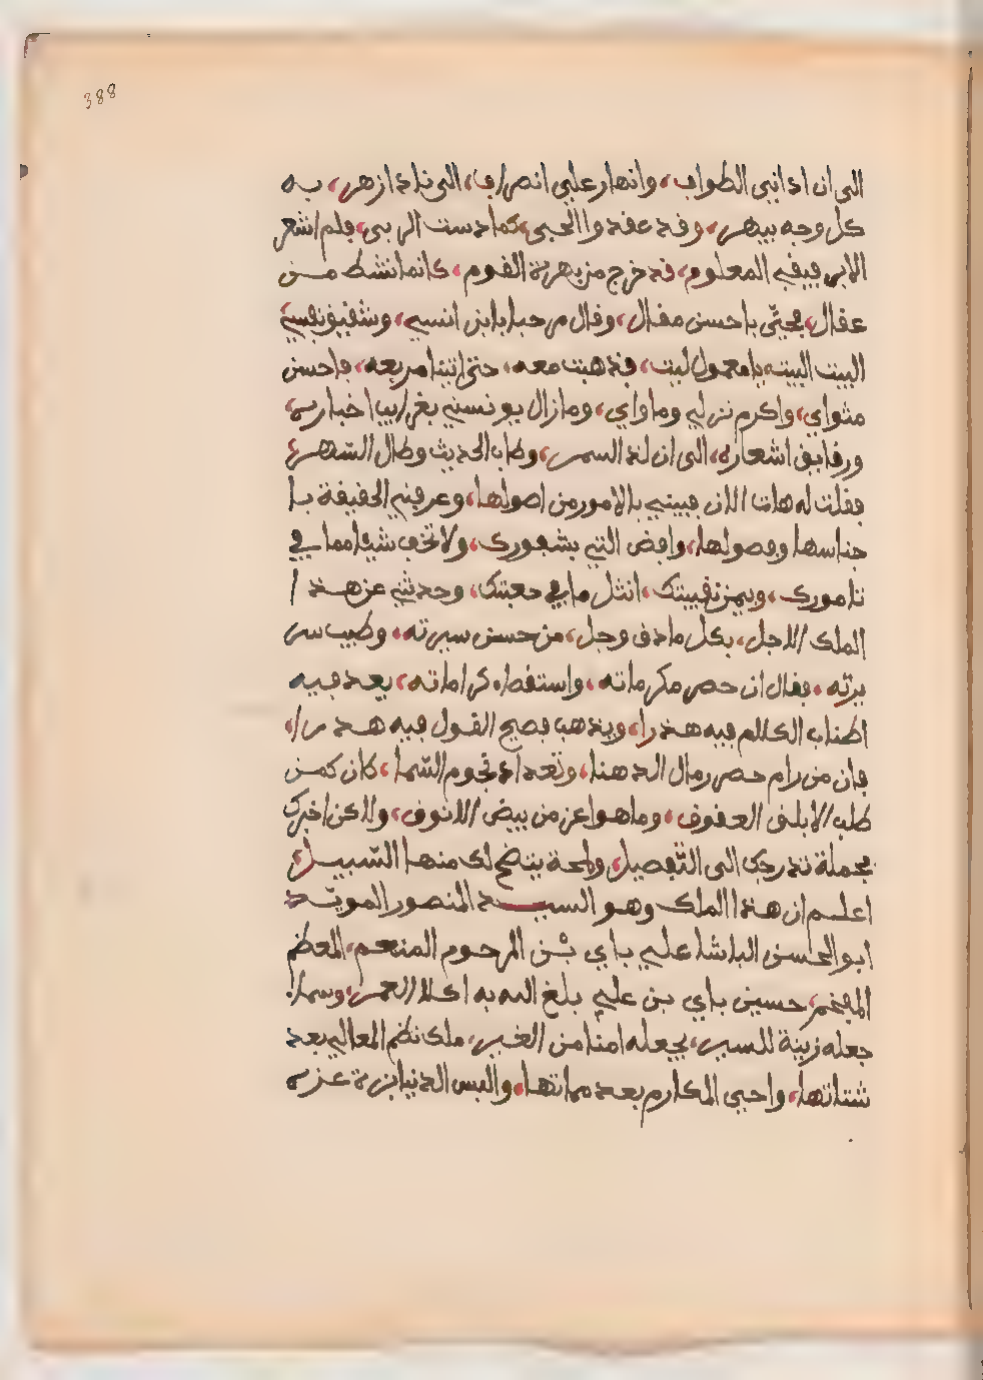 388
الى ان اداني الطواف، وانهار علي انصراف، الى ناد ازهر، به
كل وجه يبهر، وقد عقدوا الحبى، كما دست الربى، فلم اشعر
الا برفيقي المعلوم، قد خرج من بهرة القوم، كانما نشط من
عقال، فحيّى باحسن مقال، وقال مرحبا بابن انسي، وشقيق نفسي
البيت البيت يا معمول ليت، فذهبت معه، حتى اتينا مربعه، فاحسن
مثواي، واكرم نزلي وماواي، وما زال يونسني بغرايب اخباره،
ورقايق اشعاره، الى ان لذ السمر، وطاب الحديث وطال السّهر،
فقلت له هات الان فبيني بالامور من اصولها، وعرفني الحقيقة با
جناسها وفصولها، وافض التي بشعورك، ولا تخف شيئا مما في
تامورك، وبيمن نقيبتك، انثل ما في جعبتك، وحدثني عن هذا
الملك الاجل، بكل ما دق وجل، من حسن سيرته، وطيب سر
يرته، فقال ان حصر مكرماته، واستقصاء كراماته، يعد فيه
اطناب الكلام فيه هذرا، ويذهب فصيح القول فيه هدرا،
فان من رام حصر رمال الدهنا، وتعداد نجوم السّما، كان كمن
طلب الابلق العقوق، وما هو اعز من بيض الانوق، ولاكن اخبرك
بجملة تدرجك الى التّفصيل، ولمحة يتضح لك منها السّبيل،
اعلم ان هذا الملك وهو السيد المنصور المويّد
ابو الحسن الباشا علي باي بْن المرحوم المنعم، المعظم
المفخم، حسين باي بن علي بلغ الله به اكلا العمر، وسما
جعله زينة للسير، يجعله امنا من الغير، ملك نظم المعالي بعد
شتاتها، واحيى المكارم بعد مماتها، والبس الدنيا بزة عزه